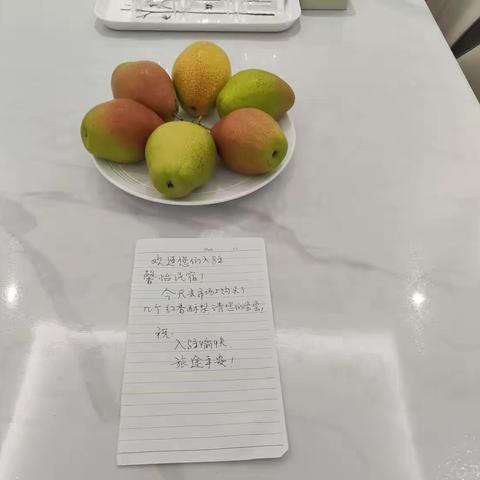 欢迎您们入住
馨怡民宿!
今天去市场上购买了
几个红香酥梨请您们尝尝,
祝:
入住愉快
旅途平安!